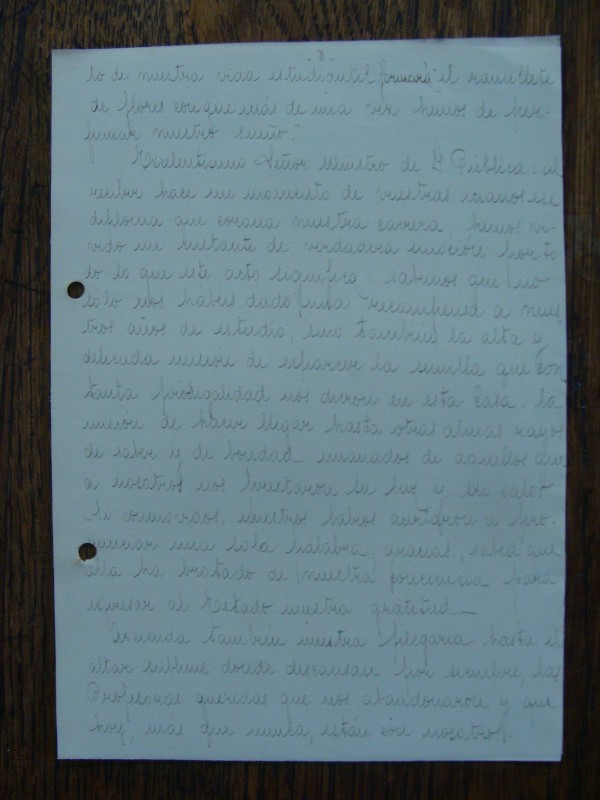 - 3 -
to de nuestra vida estudiantil formará el ramillete
de flores con que más de una vez hemos de per-
fumar nuestro sueño."
Excelentísimo Señor Ministro de I. Pública: al
recibir hace un momento de vuestras manos ese
diploma que corona nuestra carrera, hemos vi-
vido un instante de verdadera emoción por to-
do lo que este acto significa: sabemos que no
sólo nos habéis dado una recompensa a nues
tros años de estudio, sino también la alta y
delicada misión de esparcir la semilla que con
tanta prodigalidad nos dieron en esta Casa: la
misión de hacer llegar hasta otras almas rayos
de saber y de bondad emanados de aquellos que
a nosotros nos prestaron su luz y su calor
Si conmovidos, nuestros labios acertaron a pro-
nunciar una sola palabra: gracias, sabed que
ella ha brotado de nuestra conciencia para
expresar al Estado nuestra gratitud
Ascienda también nuestra plegaria hasta el
altar sublime donde descansan por siempre, las
Profesoras queridas que nos abandonaron y que
hoy, mas que nunca, están con nosotros.